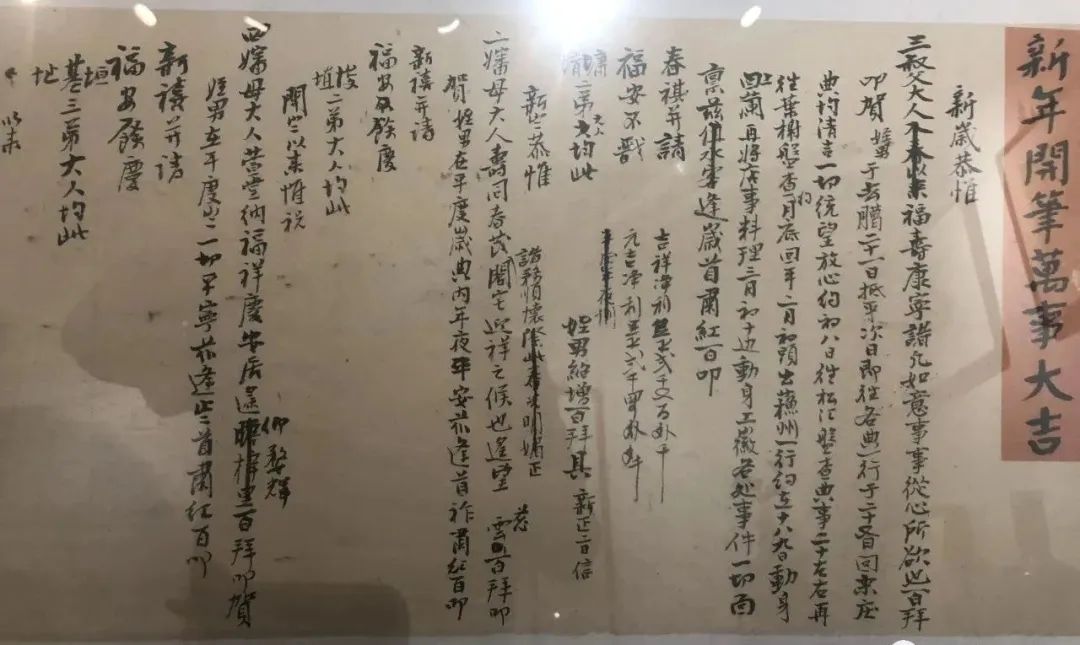 新年開筆萬事大吉
新歲恭惟
三叔父大人福壽康寧諸凡如意事事從心所欲也百拜
叩賀姪于去臘二十一日抵平次日即往各典一行于二十日回東庄
典均清吉一切統望放心約初八日往松江盤查典事二十左右再
往葉榭盤查月底回平二月初頭出蘇州一行約在十八九日動身
回蘭再將店事料理三月初十边動身上徽各处事件一切面
稟茲逢歲首肅紅百叩
春祺并請
福安不戩
墉二弟大人均此
吉祥淨利
元吉淨利
姪男始增百拜具 新正二日信
新歲恭惟
諸務順懷際此春光明媚正
二嬸母大人壽同春茂闔宅迎祥之候也遙望慈雲百拜叩
賀姪男在平度歲典内年夜平安恭逢首祚肅紅百叩
新禧并請
福安及餘慶
埴二弟大人均此
開歲以來惟祝
四嬸母大人萱堂納福祥慶安居遠仰婺輝百拜叩賀
姪男在平度歲一切平寧恭逢歲首肅紅百叩
新禧并請
福安餘慶
垣
基三弟大人均此